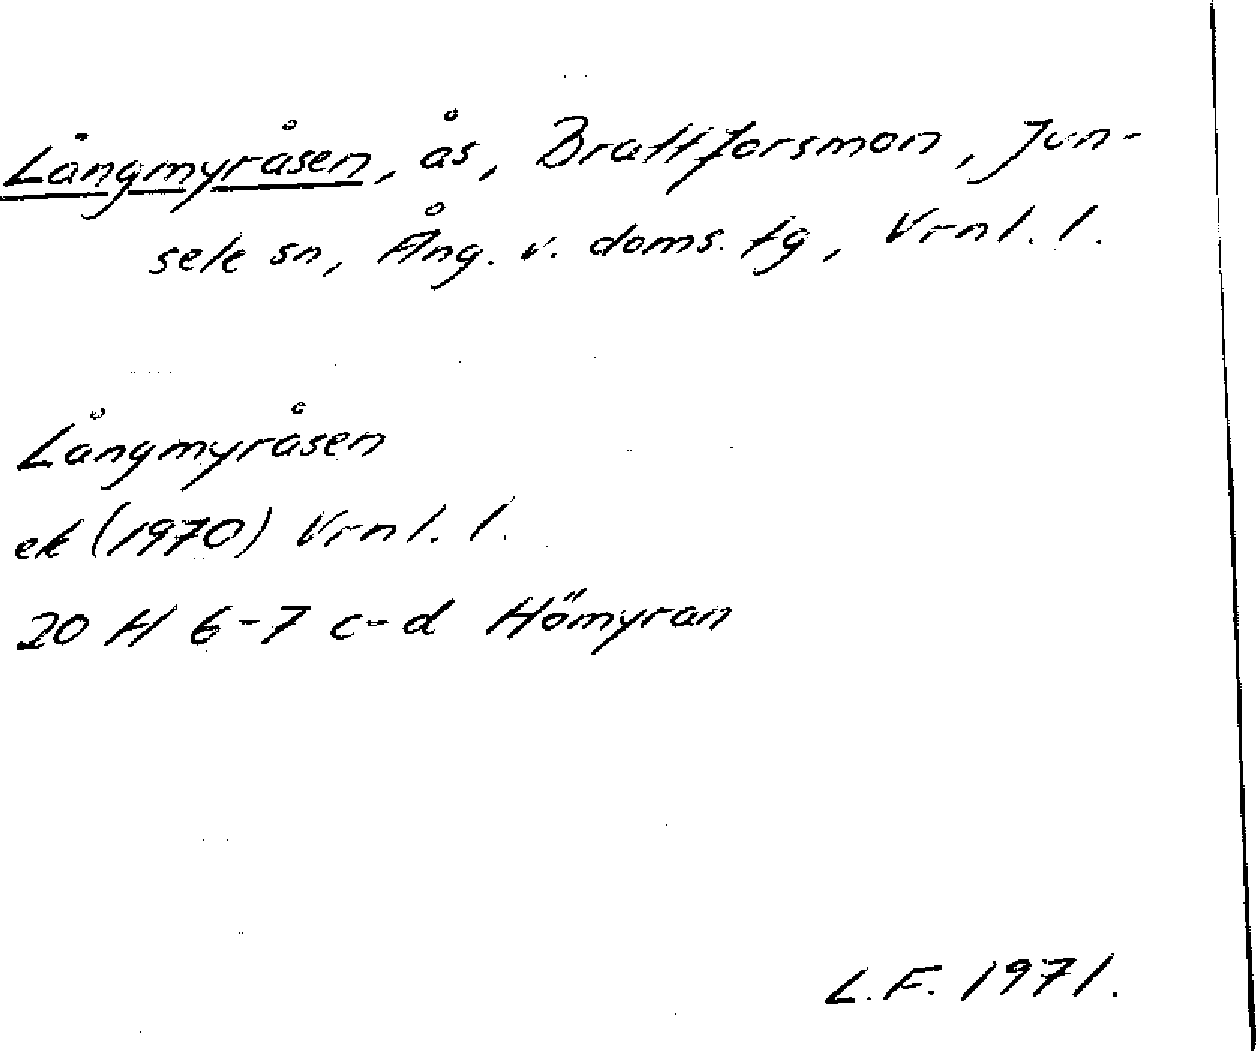 Långmyråsen, ås, Brattforsmon, Jun-
sele sn, Ång. v. doms. tg, Vrnl. l.
Långmyråsen
ek (1970) Vrnl. l.
20 H 6-7 c-d Hömyran
L.F. 1971.